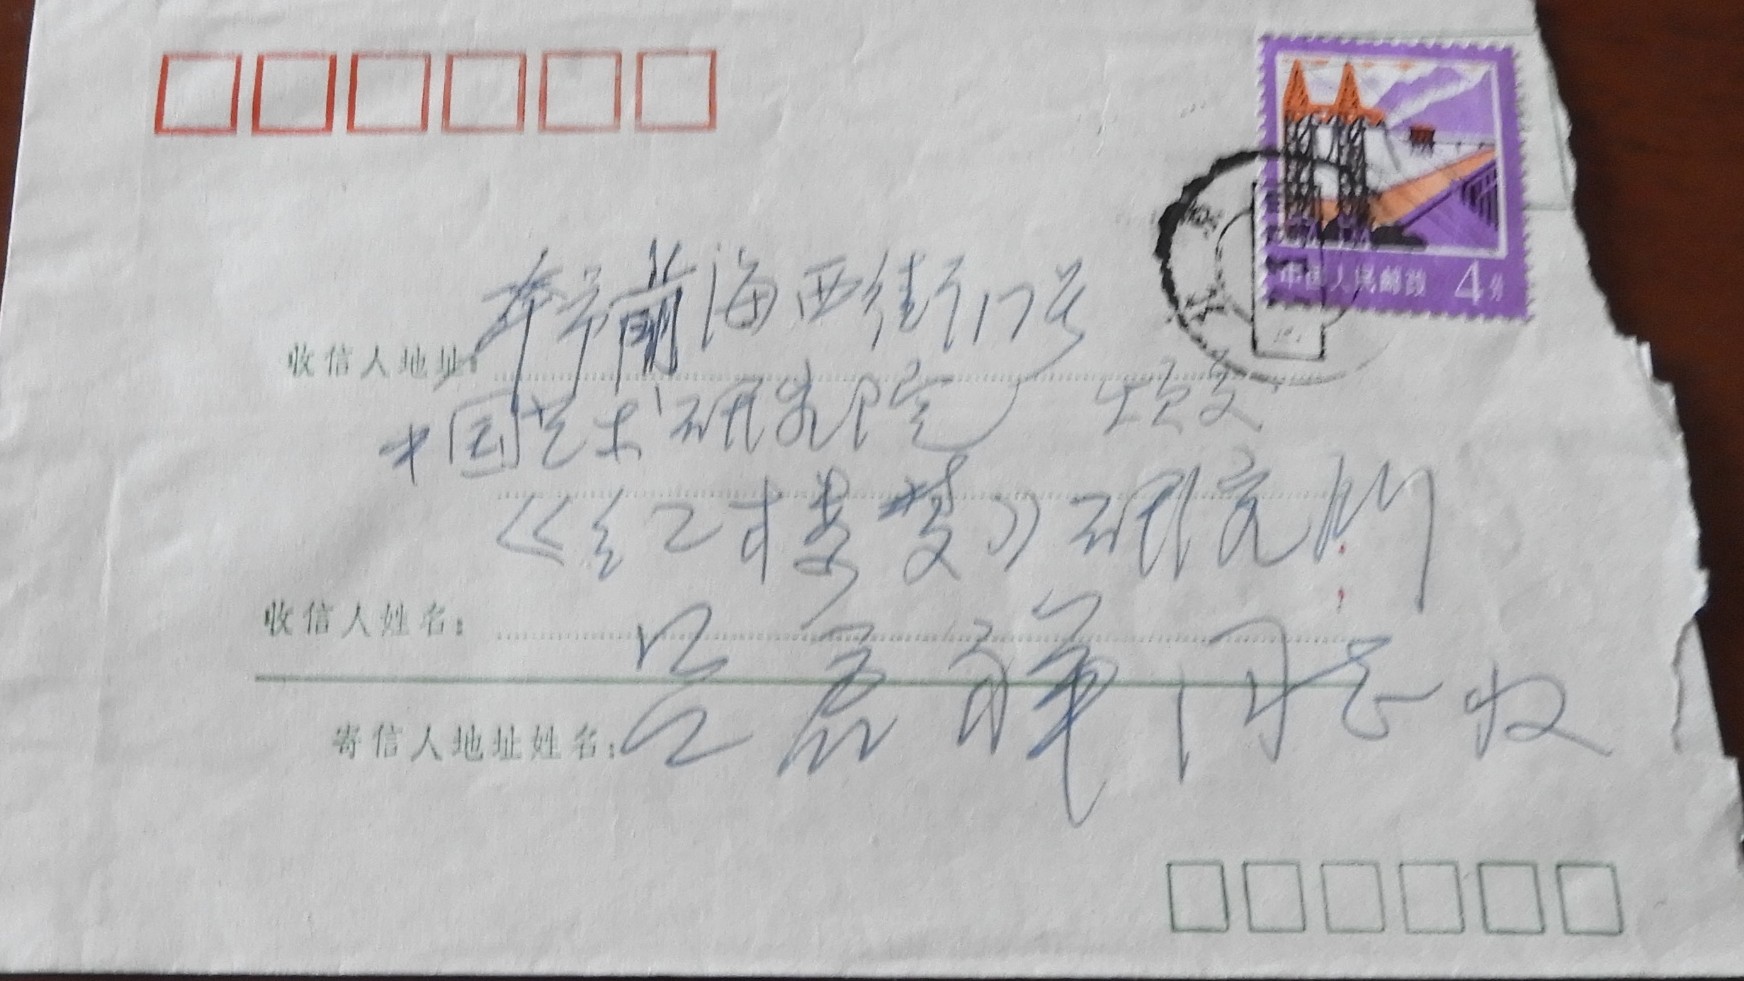 中国人民邮政 4分
本市前海西街17号
收信人地址:
中国艺术研究院 烦交
《红楼梦》研究所
收信人姓名:
吕启祥同志收
寄信人地址姓名: